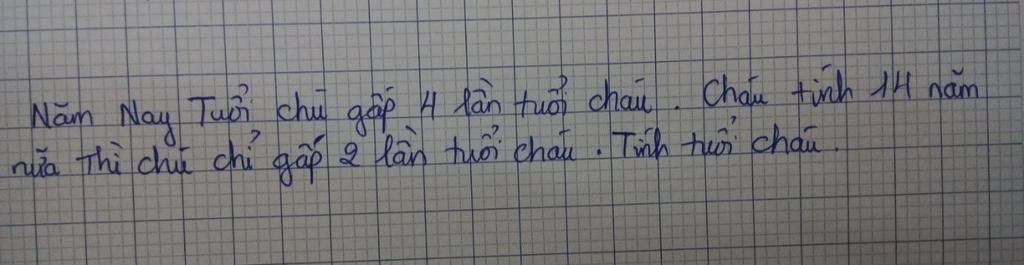 Năm Nay Tuổi chú gấp 4 lần tuổi cháu. Cháu tính 14 năm
nữa Thì chú chỉ gấp 2 lần tuổi cháu. Tính tuổi cháu.